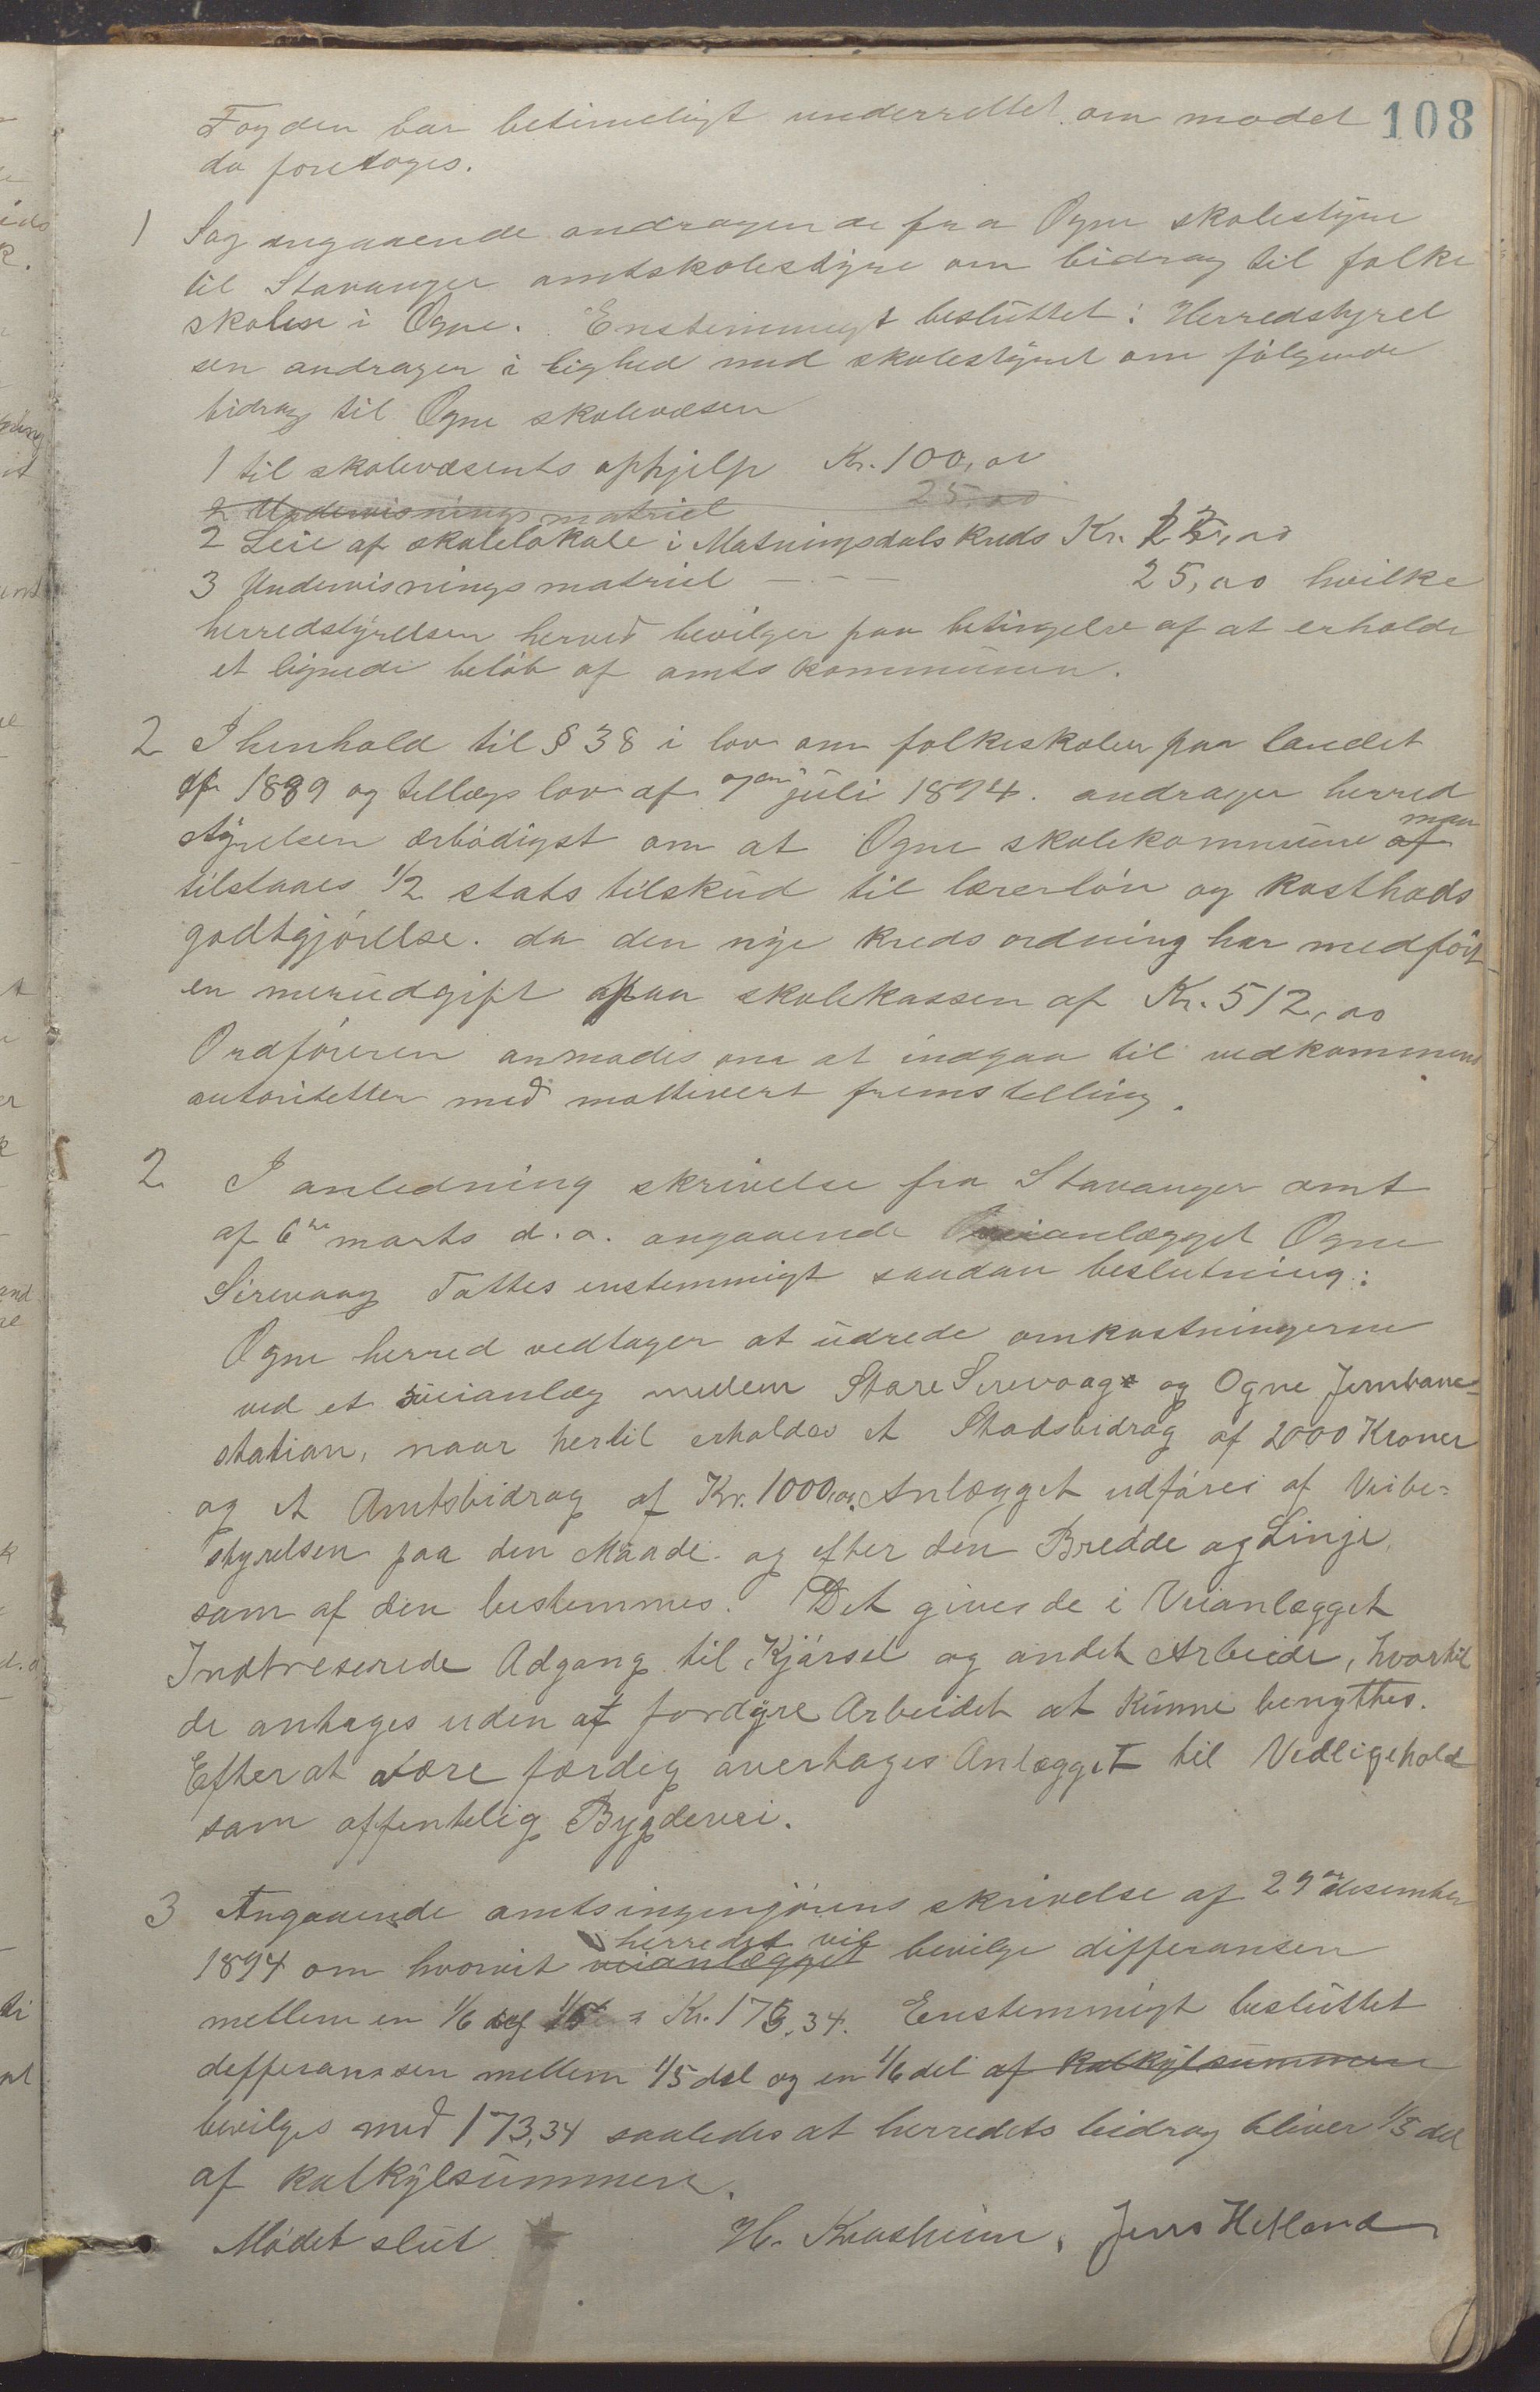 108
Fogden har betimeligt underrettet om mødet
da foretoges.
1 Sag angaaende andragende fra Ogne skolestyre
til Stavanger amtskolestyre om bidrag til folke
skolen i Ogne. Enstemmigt besluttet: Herredstyrel
sen andrager i lighed med skolestyret om følgende
bidrag til Ogne skolevæsen
1 til skolevæsents ophjelp Kr. 100,00
2 Undervisnings matriel 25,00
2 Leie af skolelokale i Matningsdals kreds Kr. 00
3 Undervisnings matriel - - - 25,00 hvilke
herredstyrelsen herved bevilger paa betingelse af at erholde
et lignede beløb af amts kommunen.
2 I henhold til § 38 i lov om folkeskolen paa landet
af 1889 og tillægs lov af juli 1894. andrager herred
styrelsen ærbødigst om at Ogne skolekommune maa
tilstaaes 1/2 stats tilskud til lærerløn og kostholds
godtgjørelse. da den nye kreds ordning har medført
en merudgift paa skolekassen af Kr. 512,00
Ordføreren anmodes om at indgaa til vedkommend
autoritetter med mottivert fremstelling.
2 I anledning skrivelse fra Stavanger amt
af 6te marts d.a. angaaende veianlægget Ogne
Sirevaag Fattes enstemmigt saadan beslutning:
Ogne herred vedtager at udrede omkostningerne
ved et veianlæg mellem Store Sirevaag og Ogne Jernbane-
station, naar hertil erholdes et Stadsbidrag af 2000 Kroner
og et Amtsbidrag af Kr. 1000,00. Anlægget udføres af Veibe=
styrelsen paa den Maade og efter den Bredde og Linje
som af den bestemmes. Det gives de i Veianlægget
Indtreserede Adgang til Kjørsel og andet Arbeide, hvortil
de antages uden at fordyre Arbeidet at kunne benyttes.
Efter at være færdig overtages Anlægget til Vedligehold
som offentelig Bygdevei.
3 Angaaende amtsingenjørens skrivelse af 29de desember
1894 om hvorvit veianlægget herredet vil bevilge differansen
mellem en 1/6 og 1/5 = Kr. 173,34. Enstemmigt besluttet
defferanssen mellem 1/5 del og en 1/6 del af kalkylsummen
bevilges med 173,34 saaledes at herredets bidrag bliver 1/5 del
af kalkylsummen.
Mødet slut H. Kvasheim, Jens Hetland